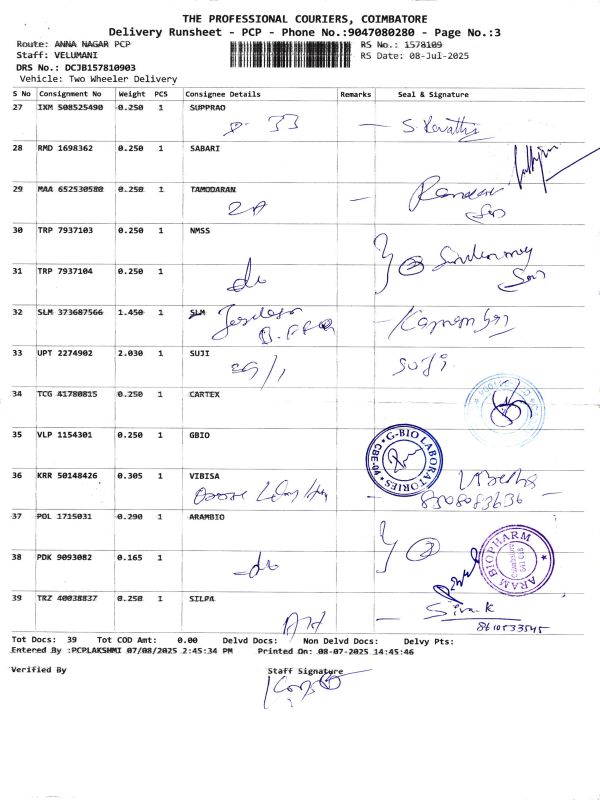 THE PROFESSIONAL COURIERS, COIMBATORE
Delivery Runsheet - PCP - Phone No.:9047080280 - Page No.:3
Route: ANNA NAGAR PCP RS No.: 1578109
Staff: VELUMANI RS Date: 08-Jul-2025
DRS No.: DCJB157810903
Vehicle: Two Wheeler Delivery
S No Consignment No Weight PCS Consignee Details Remarks Seal & Signature
27 IXM 508525490 0.250 1 SUPPRAO
33 S. Revathi
28 RMD 1698362 0.250 1 SABARI
29 MAA 652530580 0.250 1 TAMODARAN
2A
30 TRP 7937103 0.250 1 NMSS
2
31 TRP 7937104 0.250 1
do
32 SLM 373687566 1.450 1 SLM
33 UPT 2274902 2.030 1 SUJI
suji
34 TCG 41780815 0.250 1 CARTEX
35 VLP 1154301 0.250 1 GBIO
G-BIO LABORATORIES
CBE-04
36 KRR 50148426 0.305 1 VIBISA
8508083636
37 POL 1715031 0.290 1 ARAMBIO
2
38 PDK 9093082 0.165 1
do
ARAM BIOPHARM
Coimbatore
641 018
39 TRZ 40038837 0.250 1 SILPA
Siva.k
8610533545
Tot Docs: 39 Tot COD Amt: 0.00 Delvd Docs: Non Delvd Docs: Delvy Pts:
Entered By :PCPLAKSHMI 07/08/2025 2:45:34 PM Printed On: 08-07-2025 14:45:46
Verified By Staff Signature